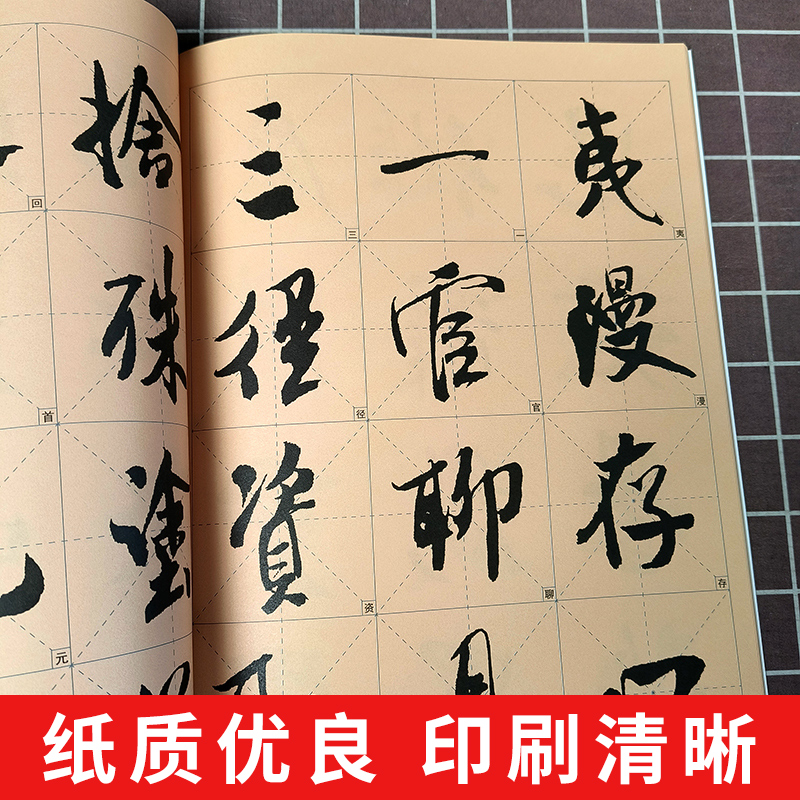 夷漫存
夷
漫
存
一官聊
一
官
聊
三徑資
三
径
资
捨殊塗
回
首
元
纸质优良 印刷清晰